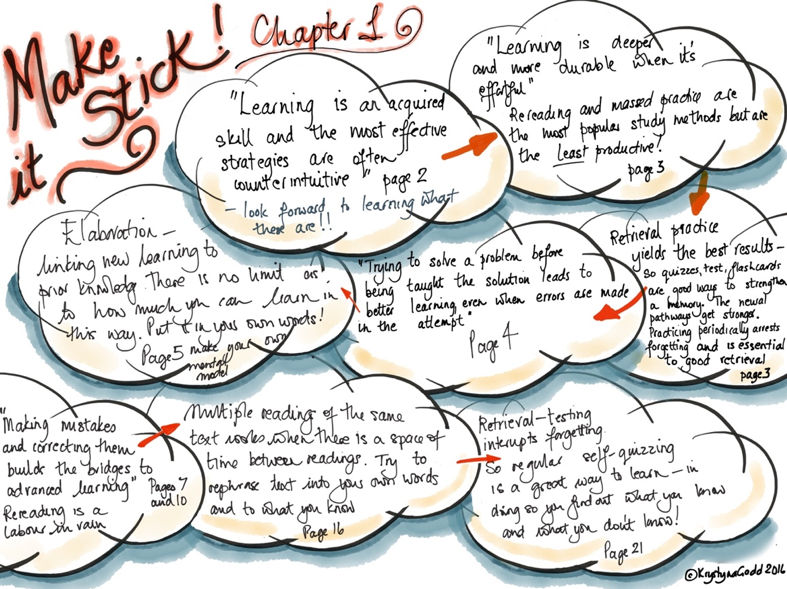 Make
it Stick!
Chapter 1
"Learning is an acquired
skill and the most effective
strategies are often
counterintuitive" page 2
- look forward to learning what
there are!!
"Learning is deeper
and more durable when it's
effortful"
Rereading and massed practice are
the most popular study methods but are
the Least productive!
page 3
Retrieval practice
yields the best results -
so quizzes, test, flashcards
are good ways to strengthen
a memory. The neural
pathways get stronger.
Practicing periodically arrests
forgetting and is essential
to good retrieval
page 3
"Trying to solve a problem before
being taught the solution leads to
better learning even when errors are made
in the attempt"
Page 4
Elaboration -
linking new learning to
prior knowledge There is no limit as
to how much you can learn in
this way. Put it in your own words!
Page 5 make your own
model
"Making mistakes
and correcting them
builds the bridges to
advanced learning"
Pages 7
and 10
Rereading is a
labour in vain
Multiple readings of the same
text works when there is a space of
time between readings. Try to
rephrase text into your own words
and to what you know
Page 16
Retrieval - testing
interupts forgetting.
So regular self-quizzing
is a great way to learn - in
doing so you find out what you know
and what you don't know!
Page 21
©KrystynaGadd 2016